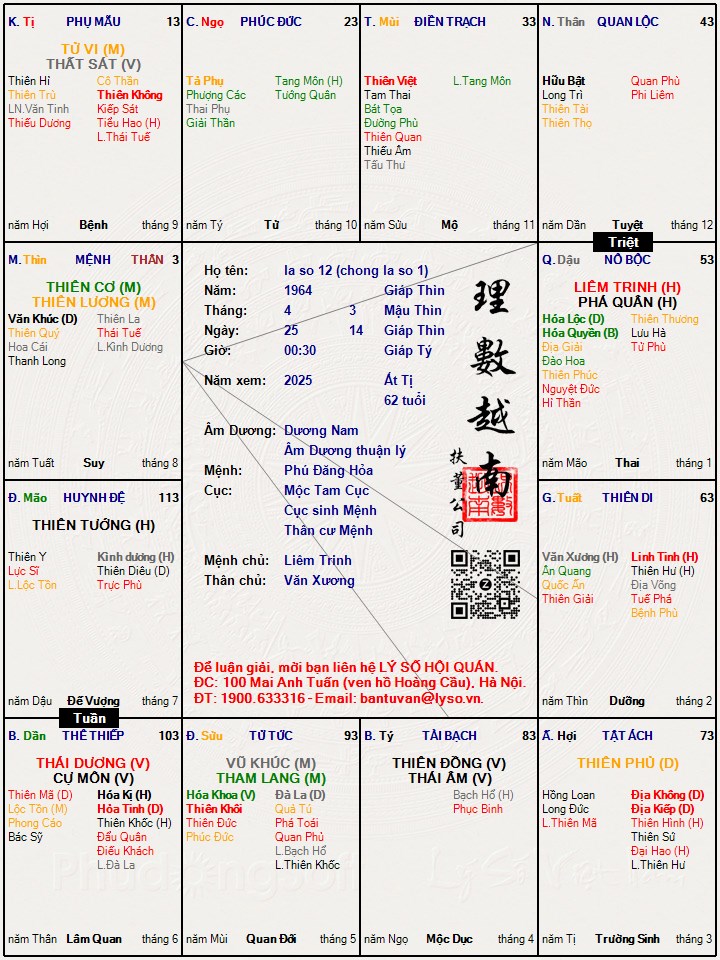 K. Tị PHỤ MẪU 13
TỬ VI (M)
THẤT SÁT (V)
Thiên Hỉ Cô Thần
Thiên Trù Thiên Không
LN.Văn Tinh Kiếp Sát
Thiếu Dương Tiểu Hao (H)
L.Thái Tuế
năm Hợi Bệnh tháng 9
C. Ngọ PHÚC ĐỨC 23
Tả Phụ Tang Môn (H)
Phượng Các Tướng Quân
Thai Phụ
Giải Thần
năm Tý Tử tháng 10
T. Mùi ĐIỀN TRẠCH 33
Thiên Việt L.Tang Môn
Tam Thai
Bát Tọa
Đường Phù
Thiên Quan
Thiếu Âm
Tấu Thư
năm Sửu Mộ tháng 11
N. Thân QUAN LỘC 43
Hữu Bật Quan Phù
Long Trì Phi Liêm
Thiên Tài
Thiên Thọ
năm Dần Tuyệt tháng 12
Triệt
M. Thìn MỆNH THÂN 3
THIÊN CƠ (M)
THIÊN LƯƠNG (M)
Văn Khúc (D) Thiên La
Thiên Quý Thái Tuế
Hoa Cái L.Kình Dương
Thanh Long
năm Tuất Suy tháng 8
Họ tên: la so 12 (chong la so 1)
Năm: 1964 Giáp Thìn
Tháng: 4 3 Mậu Thìn
Ngày: 25 14 Giáp Thìn
Giờ: 00:30 Giáp Tý
Năm xem: 2025 Ất Tị
62 tuổi
Âm Dương: Dương Nam
Âm Dương thuận lý
Mệnh: Phú Đăng Hỏa
Cục: Mộc Tam Cục
Cục sinh Mệnh
Thân cư Mệnh
Mệnh chủ: Liêm Trinh
Thân chủ: Văn Xương
理數越南
扶董公司
Để luận giải, mời bạn liên hệ LÝ SỐ HỘI QUÁN.
ĐC: 100 Mai Anh Tuấn (ven hồ Hoàng Cầu), Hà Nội.
ĐT: 1900.633316 - Email: bantuvan@lyso.vn.
Q. Dậu NÔ BỘC 53
LIÊM TRINH (H)
PHÁ QUÂN (H)
Hóa Lộc (D) Thiên Thương
Hóa Quyền (B) Lưu Hà
Địa Giải Tử Phù
Đào Hoa
Thiên Phúc
Nguyệt Đức
Hỉ Thần
năm Mão Thai tháng 1
Đ. Mão HUYNH ĐỆ 113
THIÊN TƯỚNG (H)
Thiên Y Kình dương (H)
Lực Sĩ Thiên Diêu (D)
L.Lộc Tồn Trực Phù
năm Dậu Đế Vượng tháng 7
G. Tuất THIÊN DI 63
Văn Xương (H) Linh Tinh (H)
Ân Quang Thiên Hư (H)
Quốc Ấn Địa Võng
Thiên Giải Tuế Phá
Bệnh Phù
năm Thìn Dưỡng tháng 2
Tuần
B. Dần THÊ THIẾP 103
THÁI DƯƠNG (V)
CỰ MÔN (V)
Thiên Mã (D) Hóa Kị (H)
Lộc Tồn (M) Hỏa Tinh (D)
Phong Cáo Thiên Khốc (H)
Bác Sỹ Đẩu Quân
Điếu Khách
L.Đà La
năm Thân Lâm Quan tháng 6
Đ. Sửu TỬ TỨC 93
VŨ KHÚC (M)
THAM LANG (M)
Hóa Khoa (V) Đà La (D)
Thiên Khôi Quả Tú
Thiên Đức Phá Toái
Phúc Đức Quan Phủ
L.Bạch Hổ
L.Thiên Khốc
năm Mùi Quan Đới tháng 5
B. Tý TÀI BẠCH 83
THIÊN ĐỒNG (V)
THÁI ÂM (V)
Bạch Hổ (H)
Phục Binh
năm Ngọ Mộc Dục tháng 4
Ấ. Hợi TẬT ÁCH 73
THIÊN PHỦ (D)
Hồng Loan Địa Không (D)
Long Đức Địa Kiếp (D)
L.Thiên Mã Thiên Hình (H)
Thiên Sứ
Đại Hao (H)
L.Thiên Hư
năm Tị Trường Sinh tháng 3